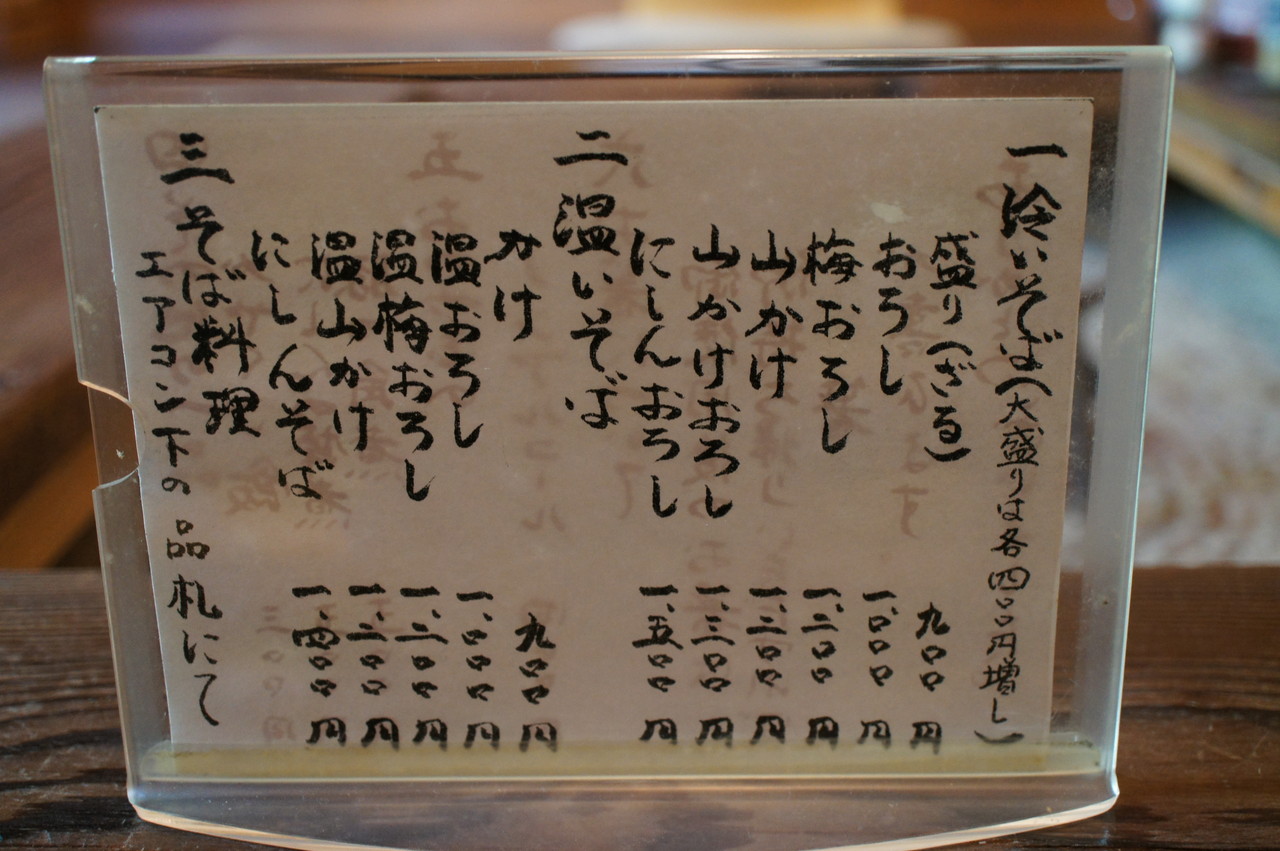 一 冷いそば（大盛りは各四〇〇円増し）
盛り（ざる） 九〇〇円
おろし 一、〇〇〇円
梅おろし 一、二〇〇円
山かけ 一、二〇〇円
山かけおろし 一、三〇〇円
にしんおろし 一、五〇〇円
二 温いそば
かけ 九〇〇円
温おろし 一、〇〇〇円
温梅おろし 一、二〇〇円
温山かけ 一、二〇〇円
にしんそば 一、四〇〇円
三 そば料理
エアコン下の品札にて